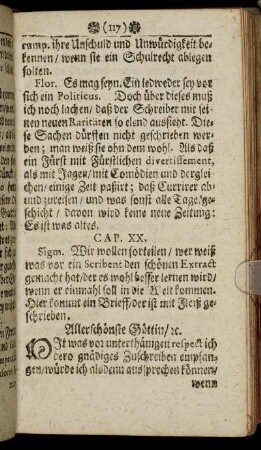 (117)
ramp. ihre Unschuld und Unwürdigkeit be-
kennen / wenn sie ein Schulrecht ablegen
solten.
Flor. Es mag seyn. Ein iedweder sey vor
sich ein Politicus. Doch über dieses muß
ich noch lachen / daß der Schreiber mit sei-
nen neuen Raritäten so elend aussieht. Die-
se Sachen dürfften nicht geschrieben wer-
den; man weiß sie ohn dem wohl. Als daß
ein Fürst mit Fürstlichen divertissement,
als mit Jagen / mit Comödien und derglei-
chen / einige Zeit paßirt; daß Currirer ab-
und zureisen / und was sonst alle Tage ge-
schicht / davon wird keine neue Zeitung:
Es ist was altes.
CAP. XX.
Sigm. Wir wollen forteilen / wer weiß
was vor ein Scribent den schönen Extract
gemacht hat / der es wohl besser lernen wird /
wenn er einmahl soll in die Welt kommen.
Hier kommt ein Brieff / der ist mit Fleiß ge-
schrieben.
Allerschönste Göttin / ꝛc.
MIt was vor unterthänigen respect ich
dero gnädiges Zuschreiben empfan-
gen / würde ich alsdenn aussprechen können /
wenn